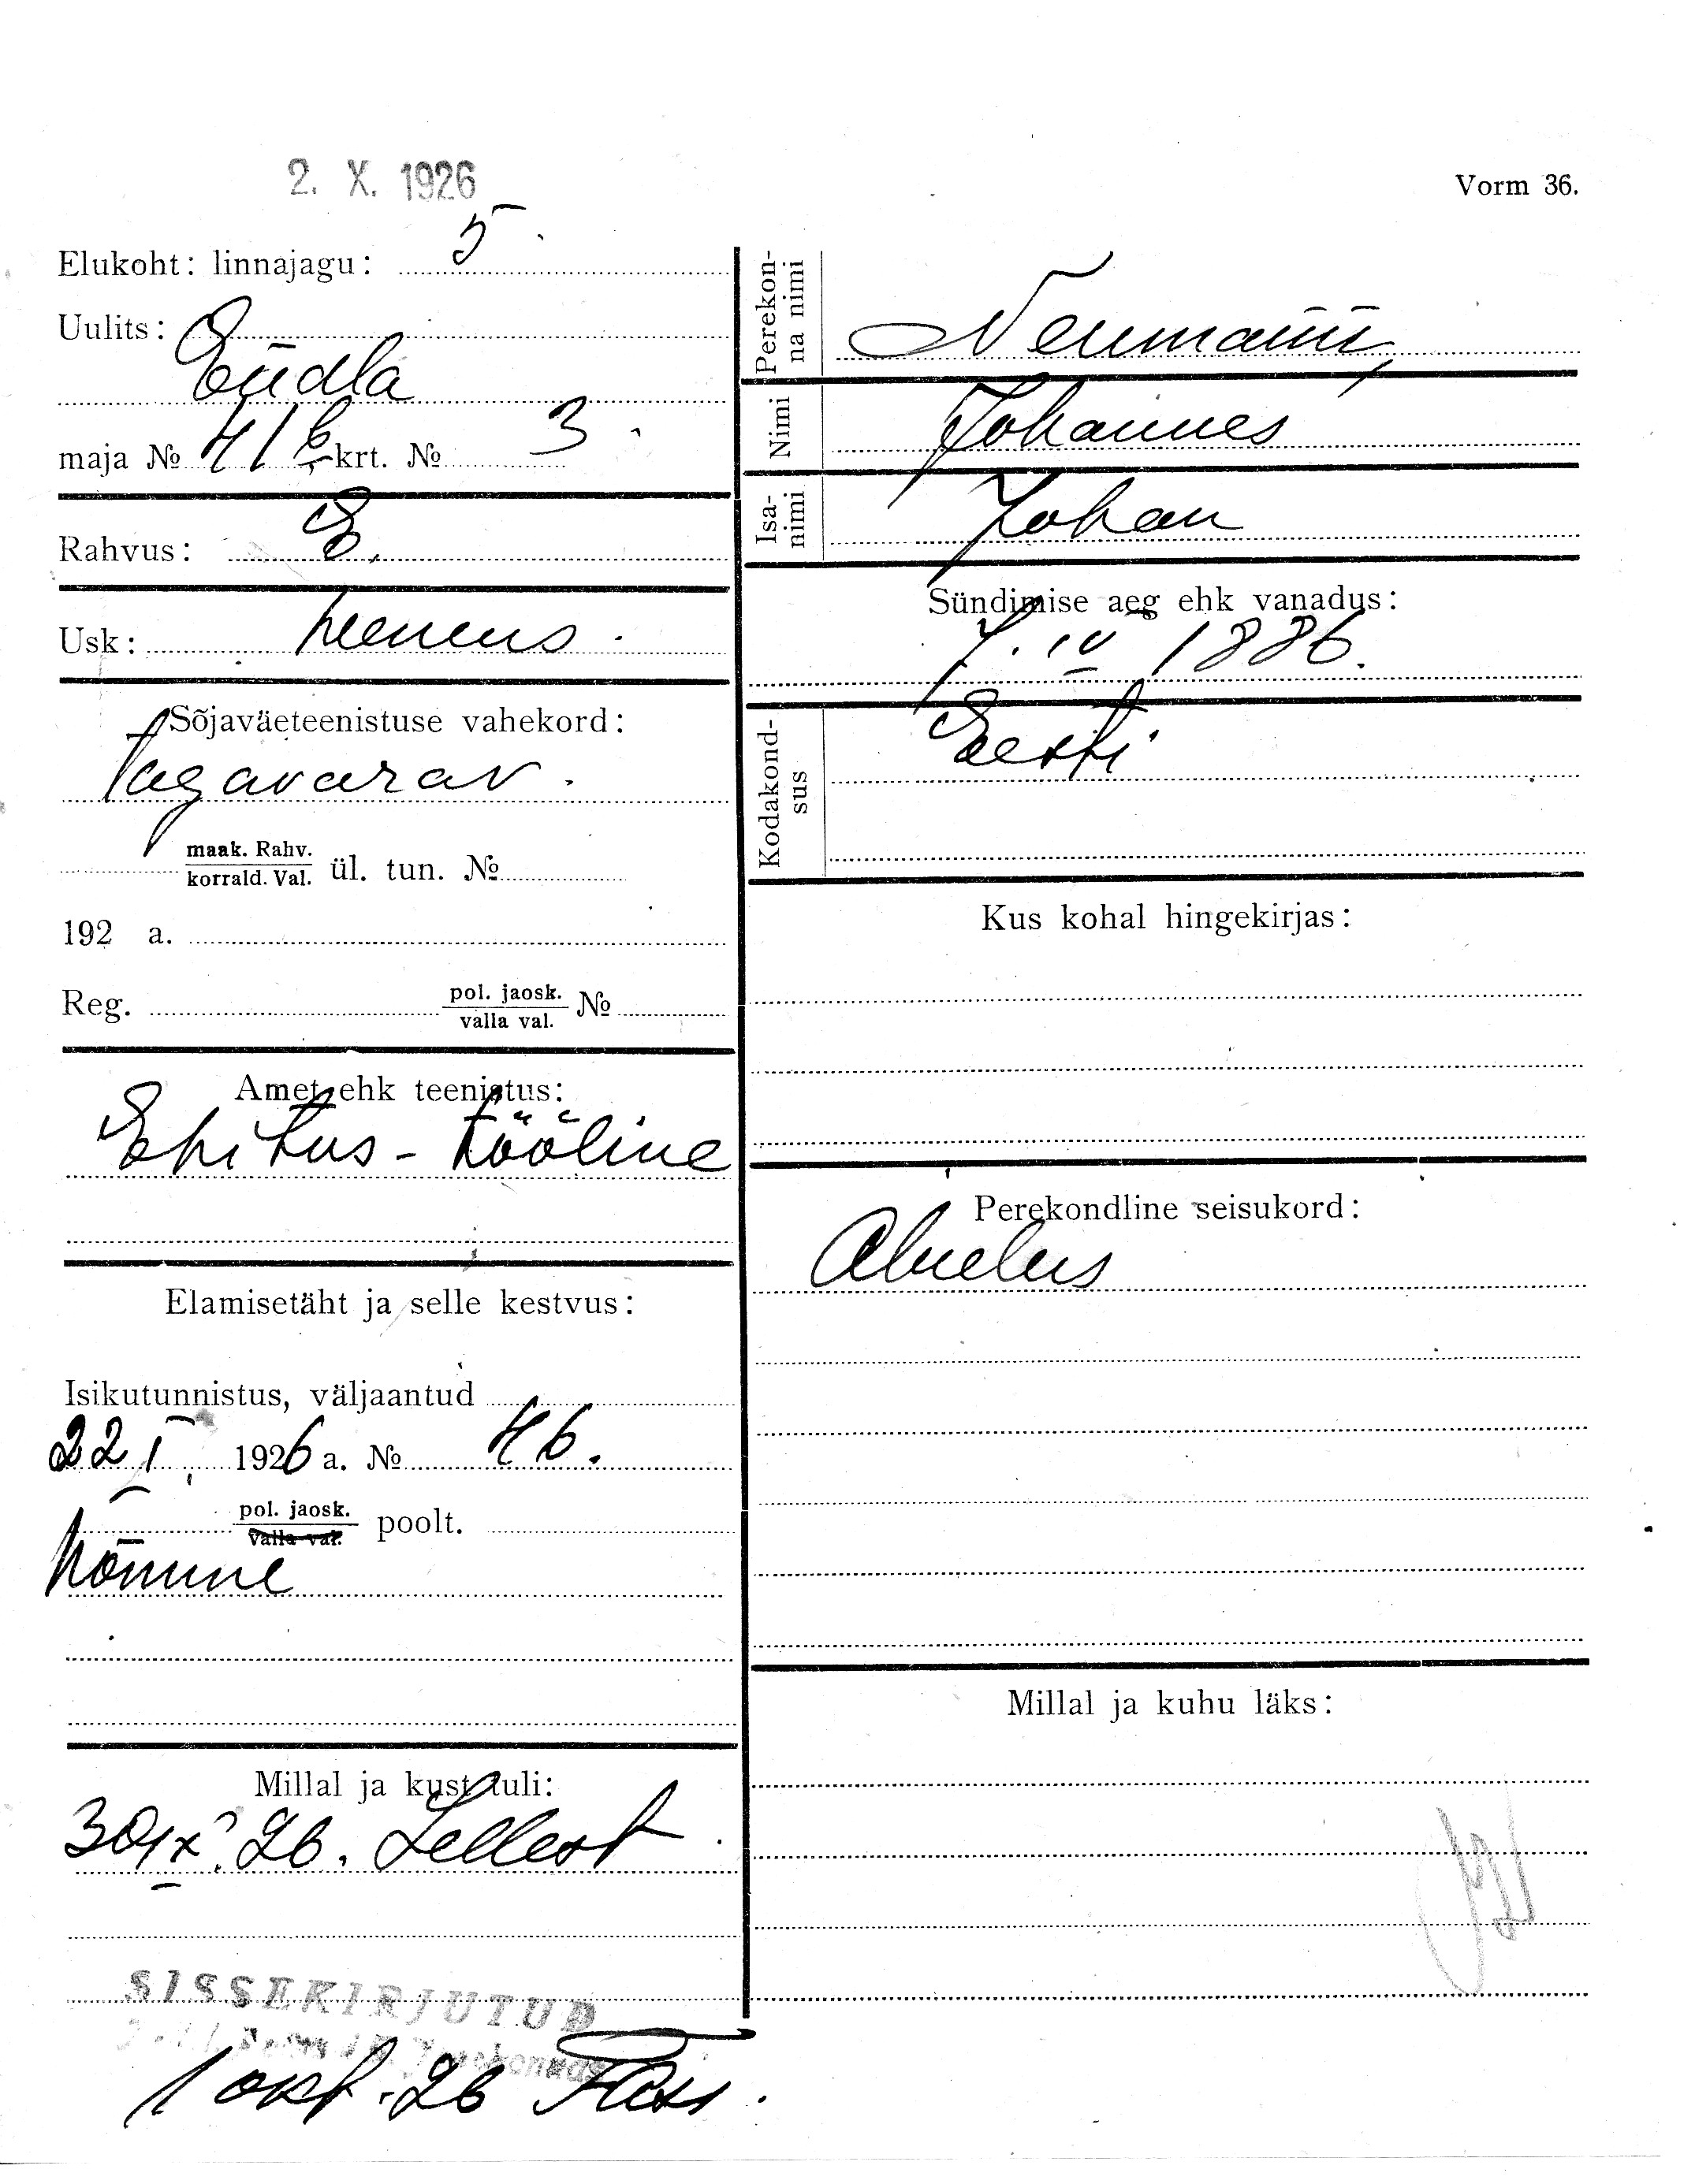 2. X. 1926
Vorm 36.
Elukoht: linnajagu: 5
Uulits:
Endla
maja № 41b krt. № 3.
Rahvus: E.
Usk:
Sõjaväeteenistuse vahekord:
Tagavarav.
maak. Rahv.
korrald. Val. ül. tun. №
192 a.
Reg. pol. jaosk.
valla val. №
Amet ehk teenistus:
Ehitus-tööline
Elamisetäht ja selle kestvus:
Isikutunnistus, väljaantud
22 I. 1926 a. № 46.
pol. jaosk.
valla val. poolt.
Nõmme
Millal ja kust tuli:
30 IX 26. Lellest
SISSEKIRJUTUD
1 okt. 26
Perekon-
na nimi Neumann,
Nimi Johannes
Isa-
nimi Johan
Sündimise aeg ehk vanadus:
7. IV 1886.
Kodakond-
sus Eesti
Kus kohal hingekirjas:
Perekondline seisukord:
Abielus
Millal ja kuhu läks: